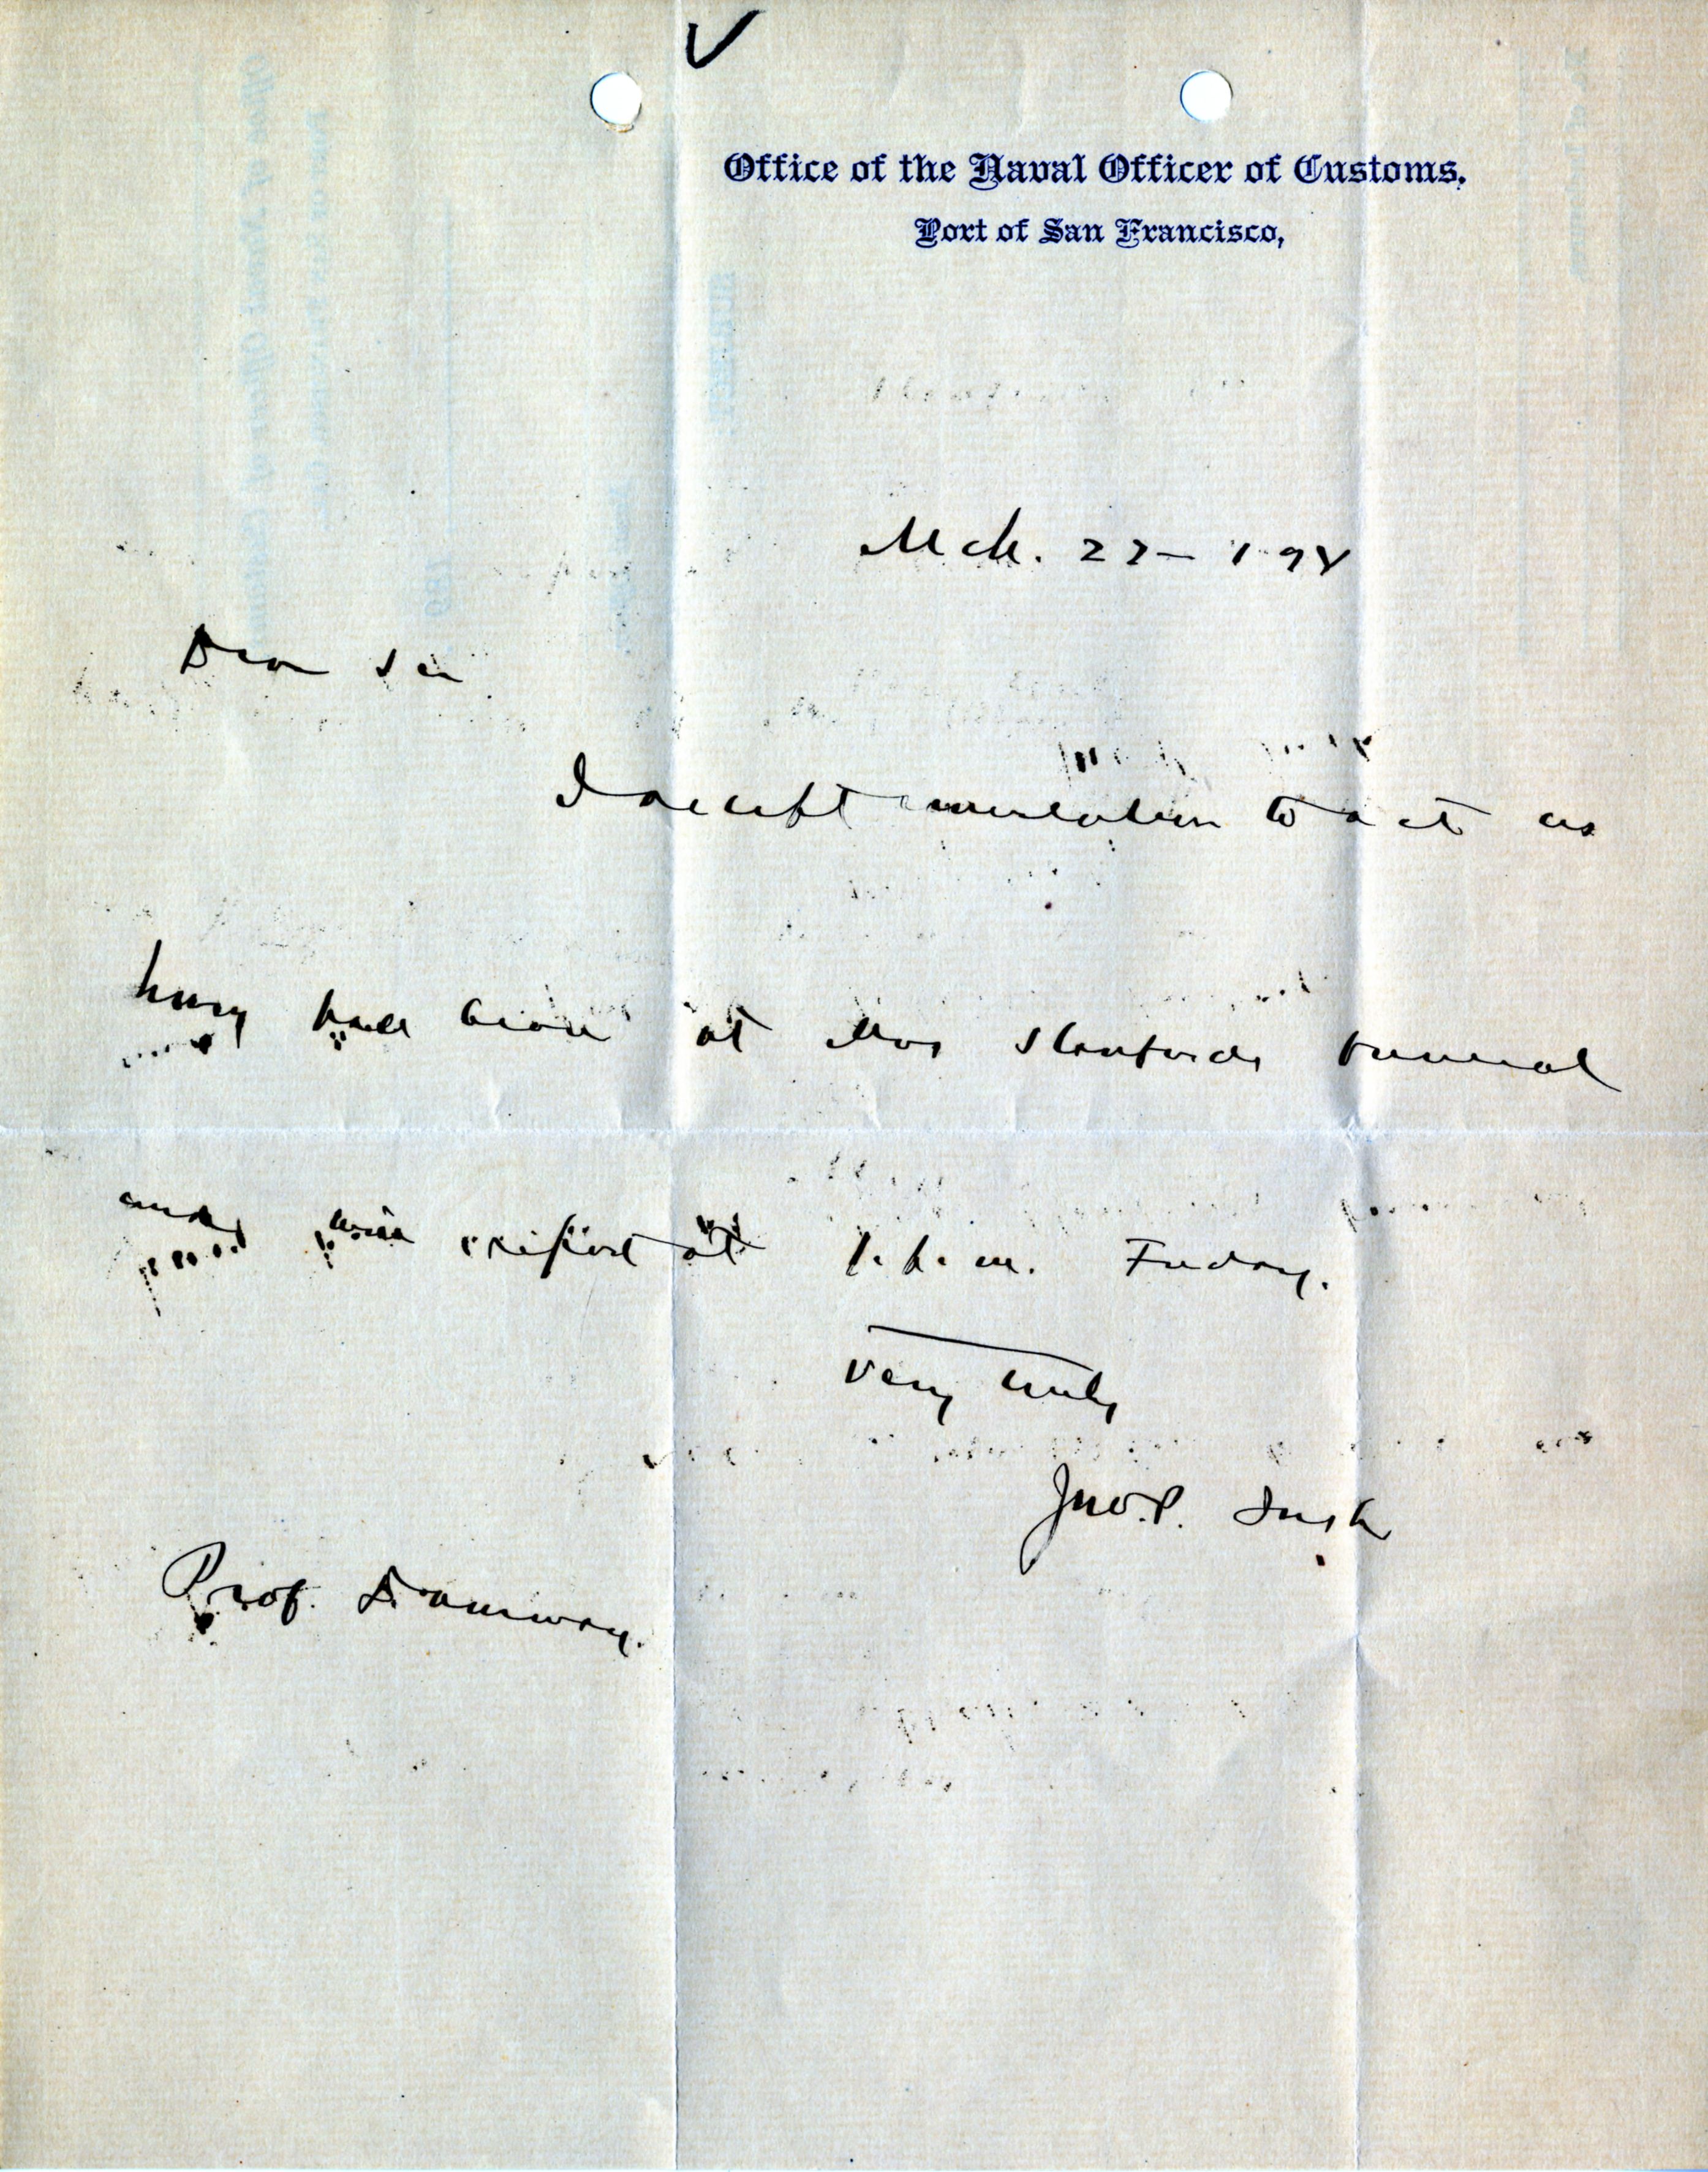 Office of the Naval Officer of Customs.
Port of San Francisco,
Mch. 22–
Dear Sir
I accept invitation to act as
hony pall bearer at Mrs Stanfords funeral
and will report at 1. p. m. Friday.
Very truly
Jno. P. Irish
Prof.